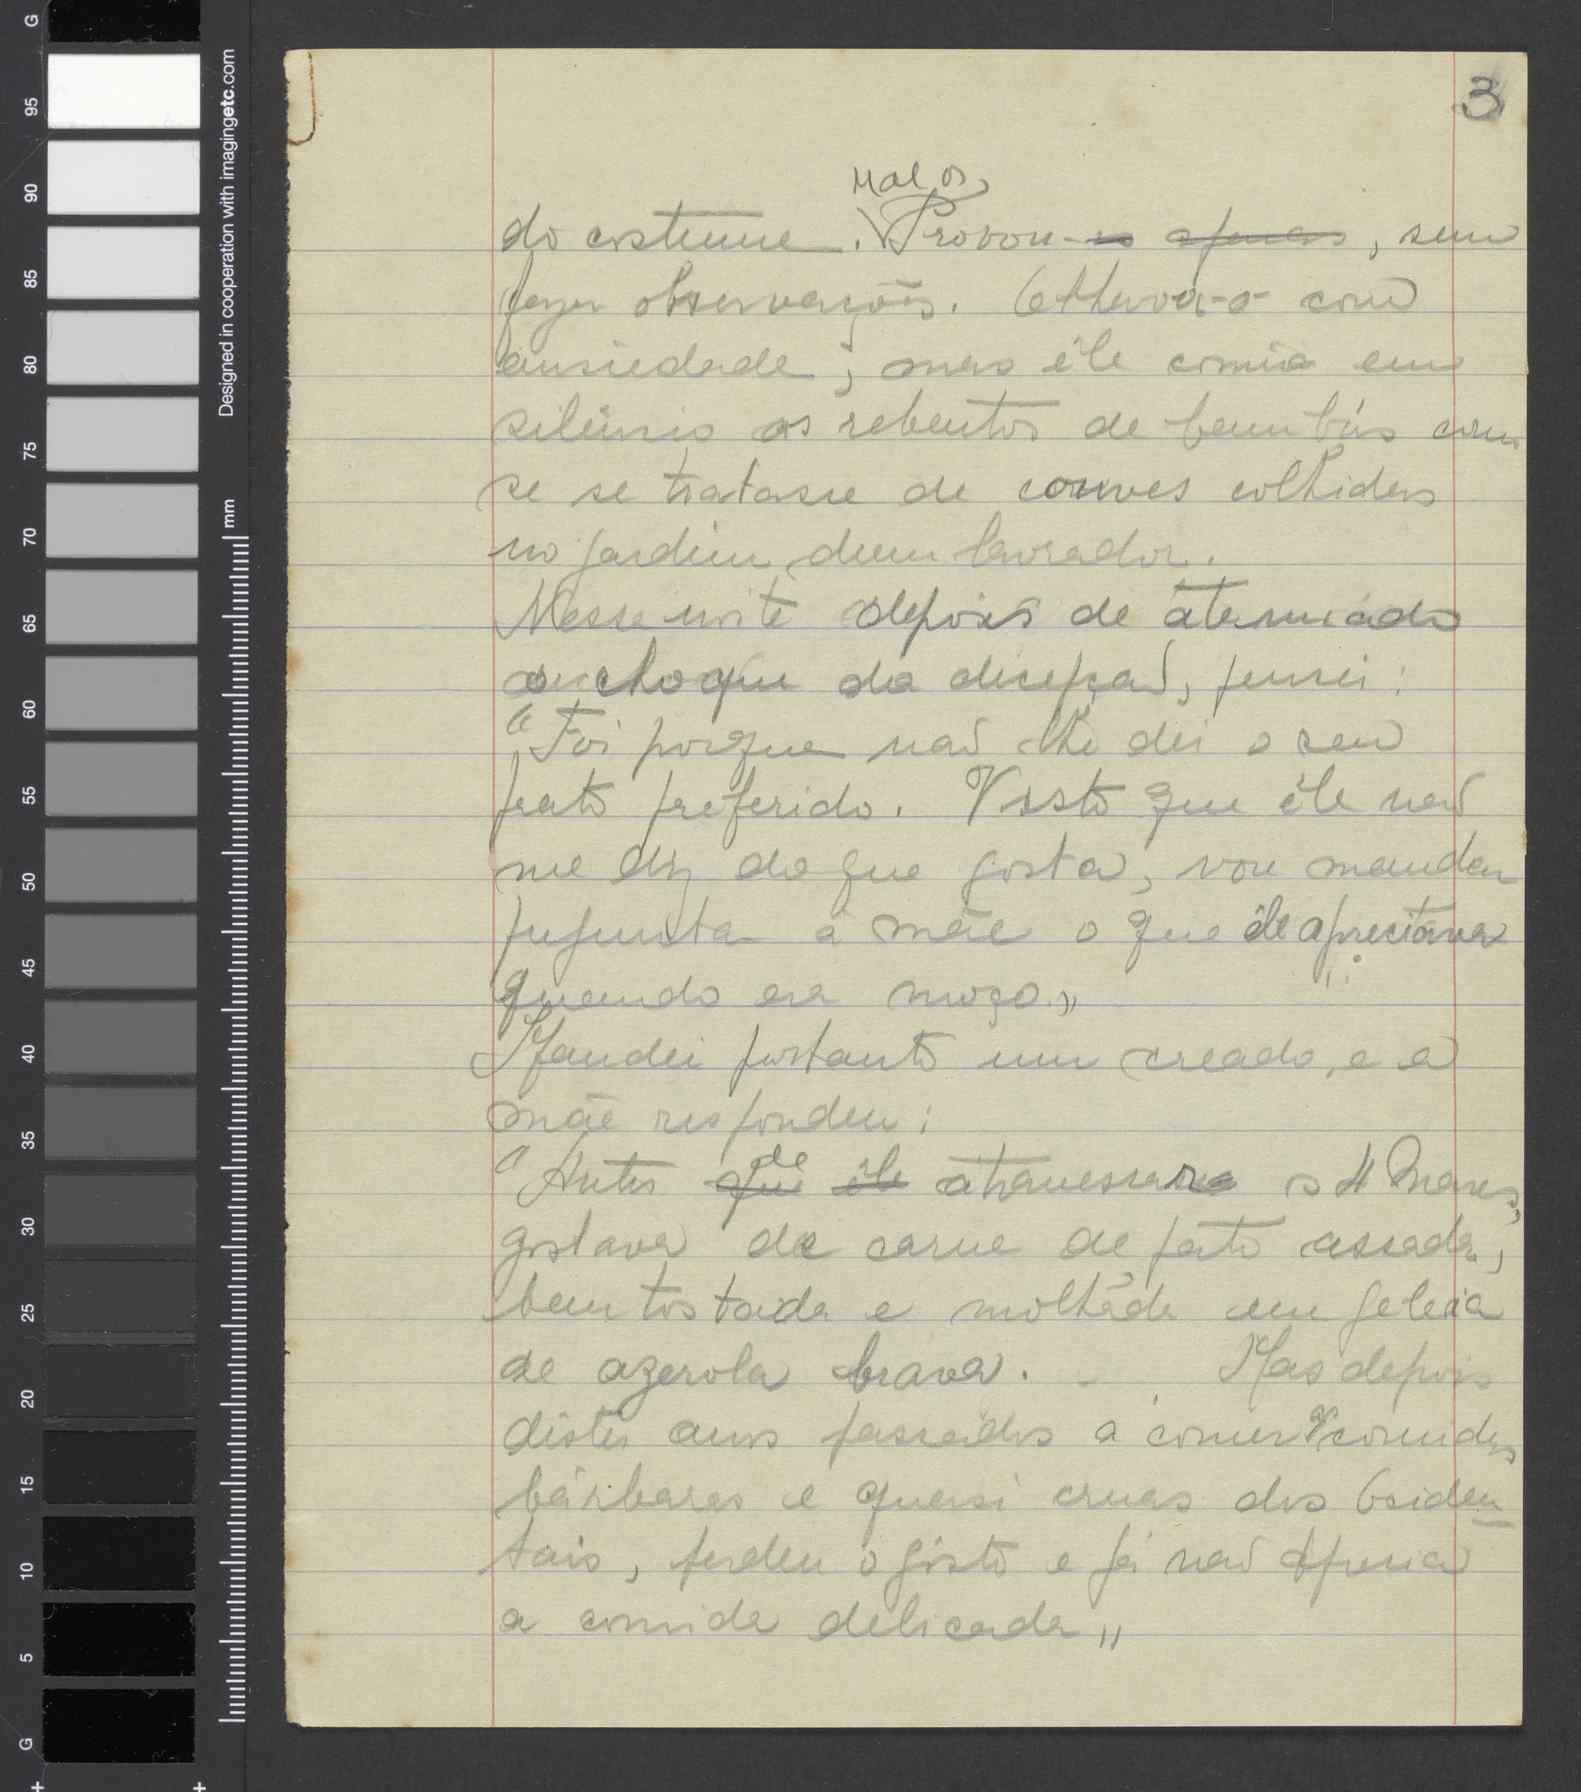 3
Mal os
do costume. Provou-os apenas, sem
fazer observações. Olhava-o com
ansiedade; mas êle comia em
silêncio os rebentos de bambús como
se se tratasse de couves colhidas
no jardim dum lavrador.
Nessa noite depois de atenuado
o choque da decepção, pensei:
"Foi porque não lhe dei o seu
prato preferido. Visto que êle não
me diz do que gosta, vou mandar
pregunta à mãe o que êle apreciava
quando era moço."
Mandei portanto um creado, e a
mãe respondeu:
de
"Antes que êle atravessare os 4 Mares,
gostava de carne de pato assada,
bem tostada e molhada em geleia
de azerola brava. Mas depois
dêstes anos passados a comer comidas
bárbaras e quasi cruas dos Ociden
tais, perdeu o gôsto e já não aprecia
a comida delicada"
Designed in cooperation with imagingetc.com
mm
G
95
90
85
80
75
70
65
60
55
50
45
40
35
30
25
20
15
10
5
G